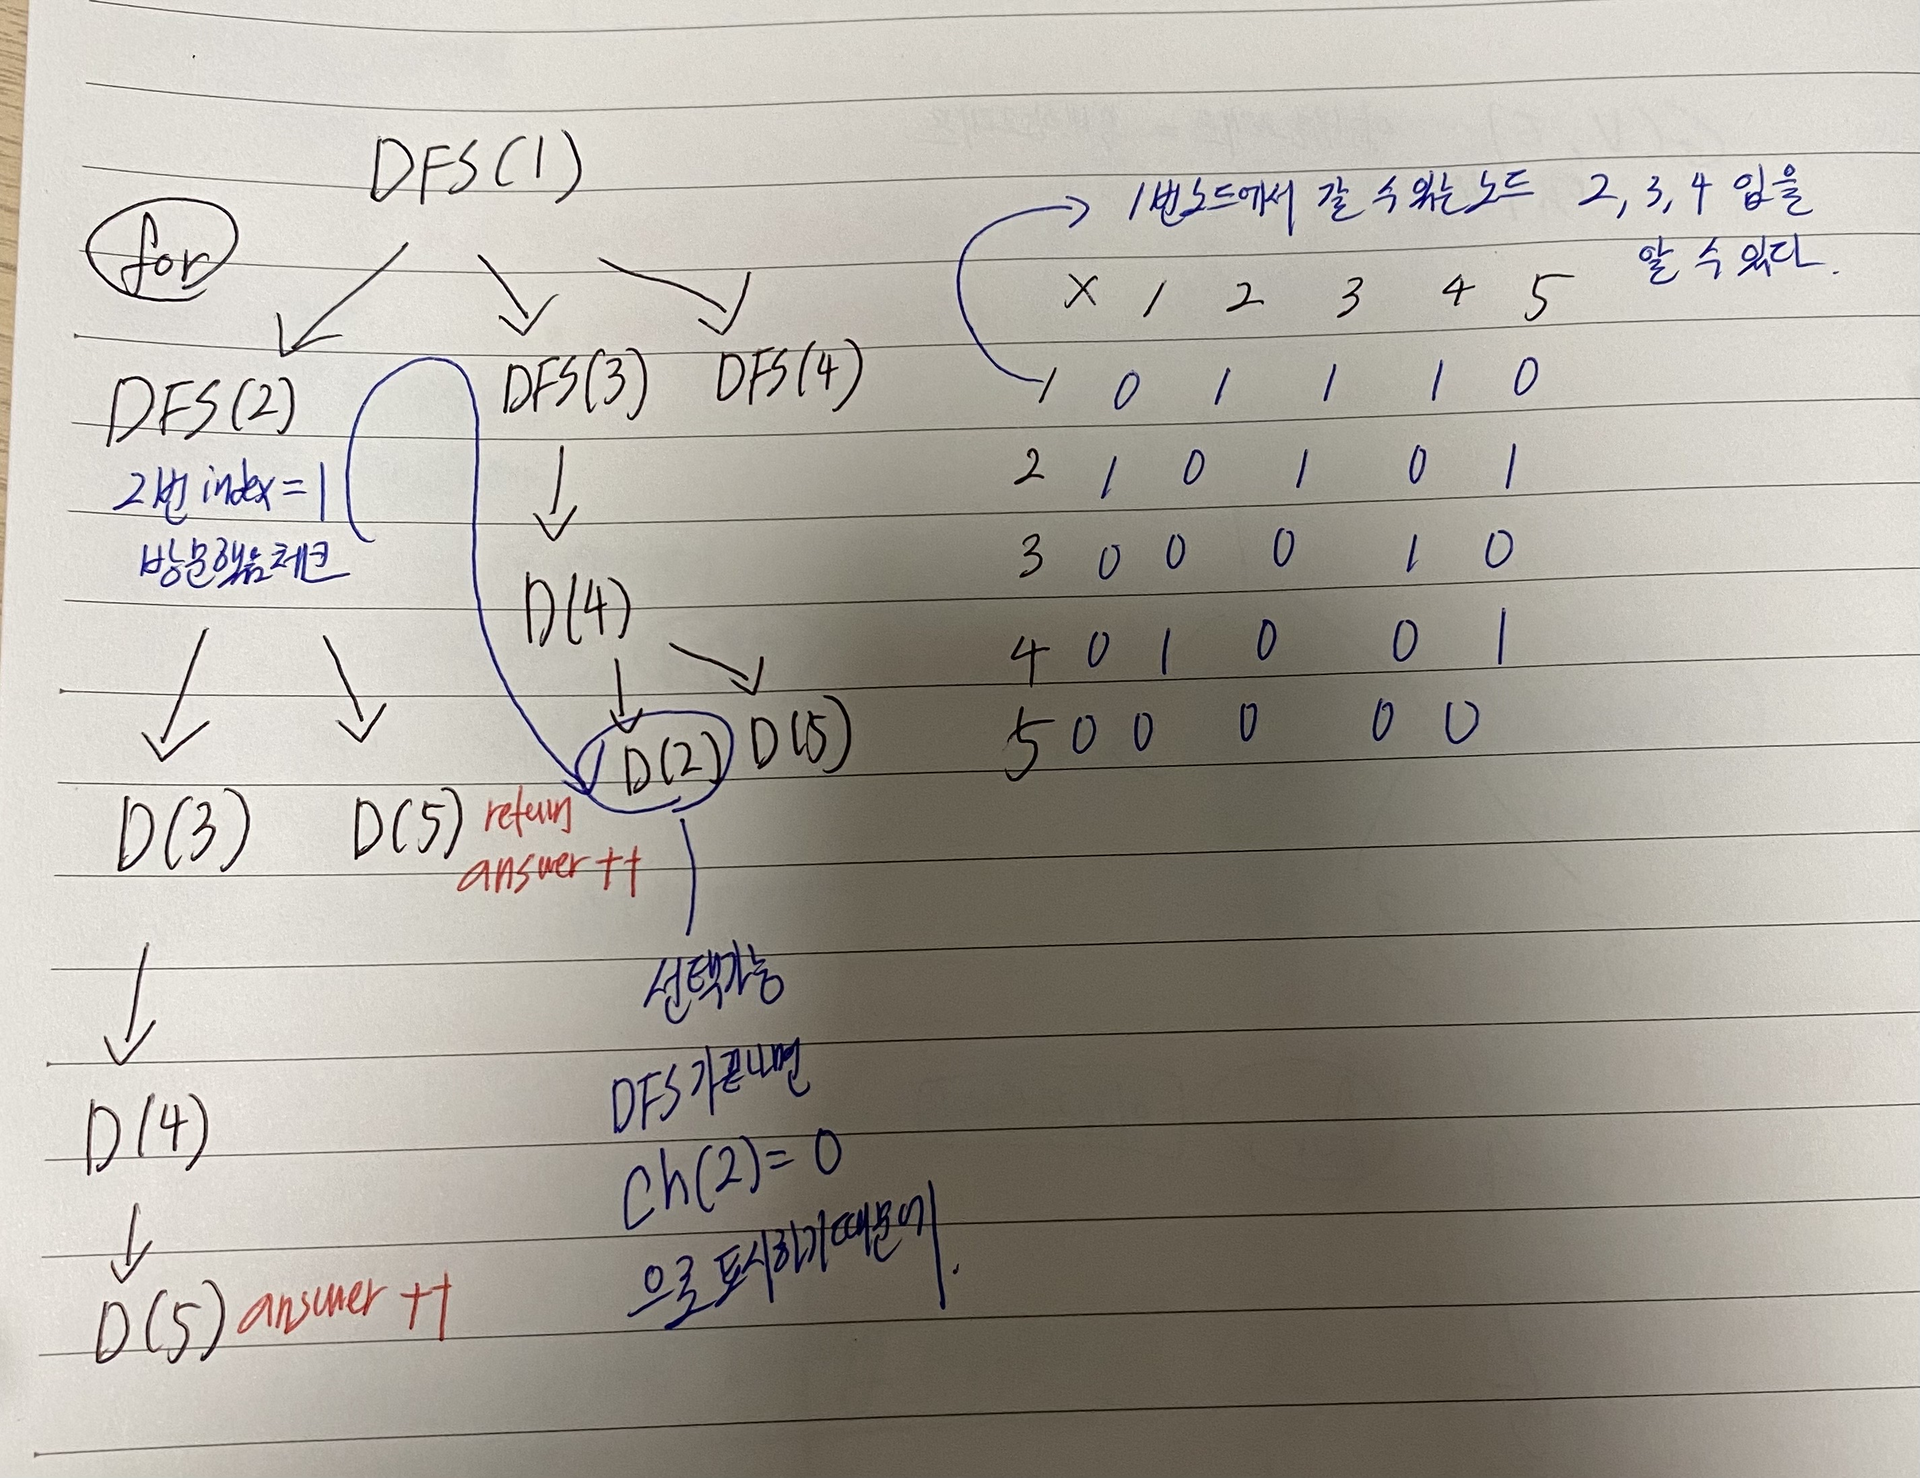 DFS(1)
for
DFS(2) DFS(3) DFS(4)
2번 index=1
방문했음체크
D(4)
D(2) D(5)
D(3) D(5) return
answer ++
선택가능
DFS가끝나면
D(4)
Ch(2)= 0
으로 표시하기때문에.
D(5) answer ++
1번노드에서 갈 수 있는노드 2, 3, 4 임을
알 수 있다.
X 1 2 3 4 5
1 0 1 1 1 0
2 1 0 1 0 1
3 0 0 0 1 0
4 0 1 0 0 1
5 0 0 0 0 0